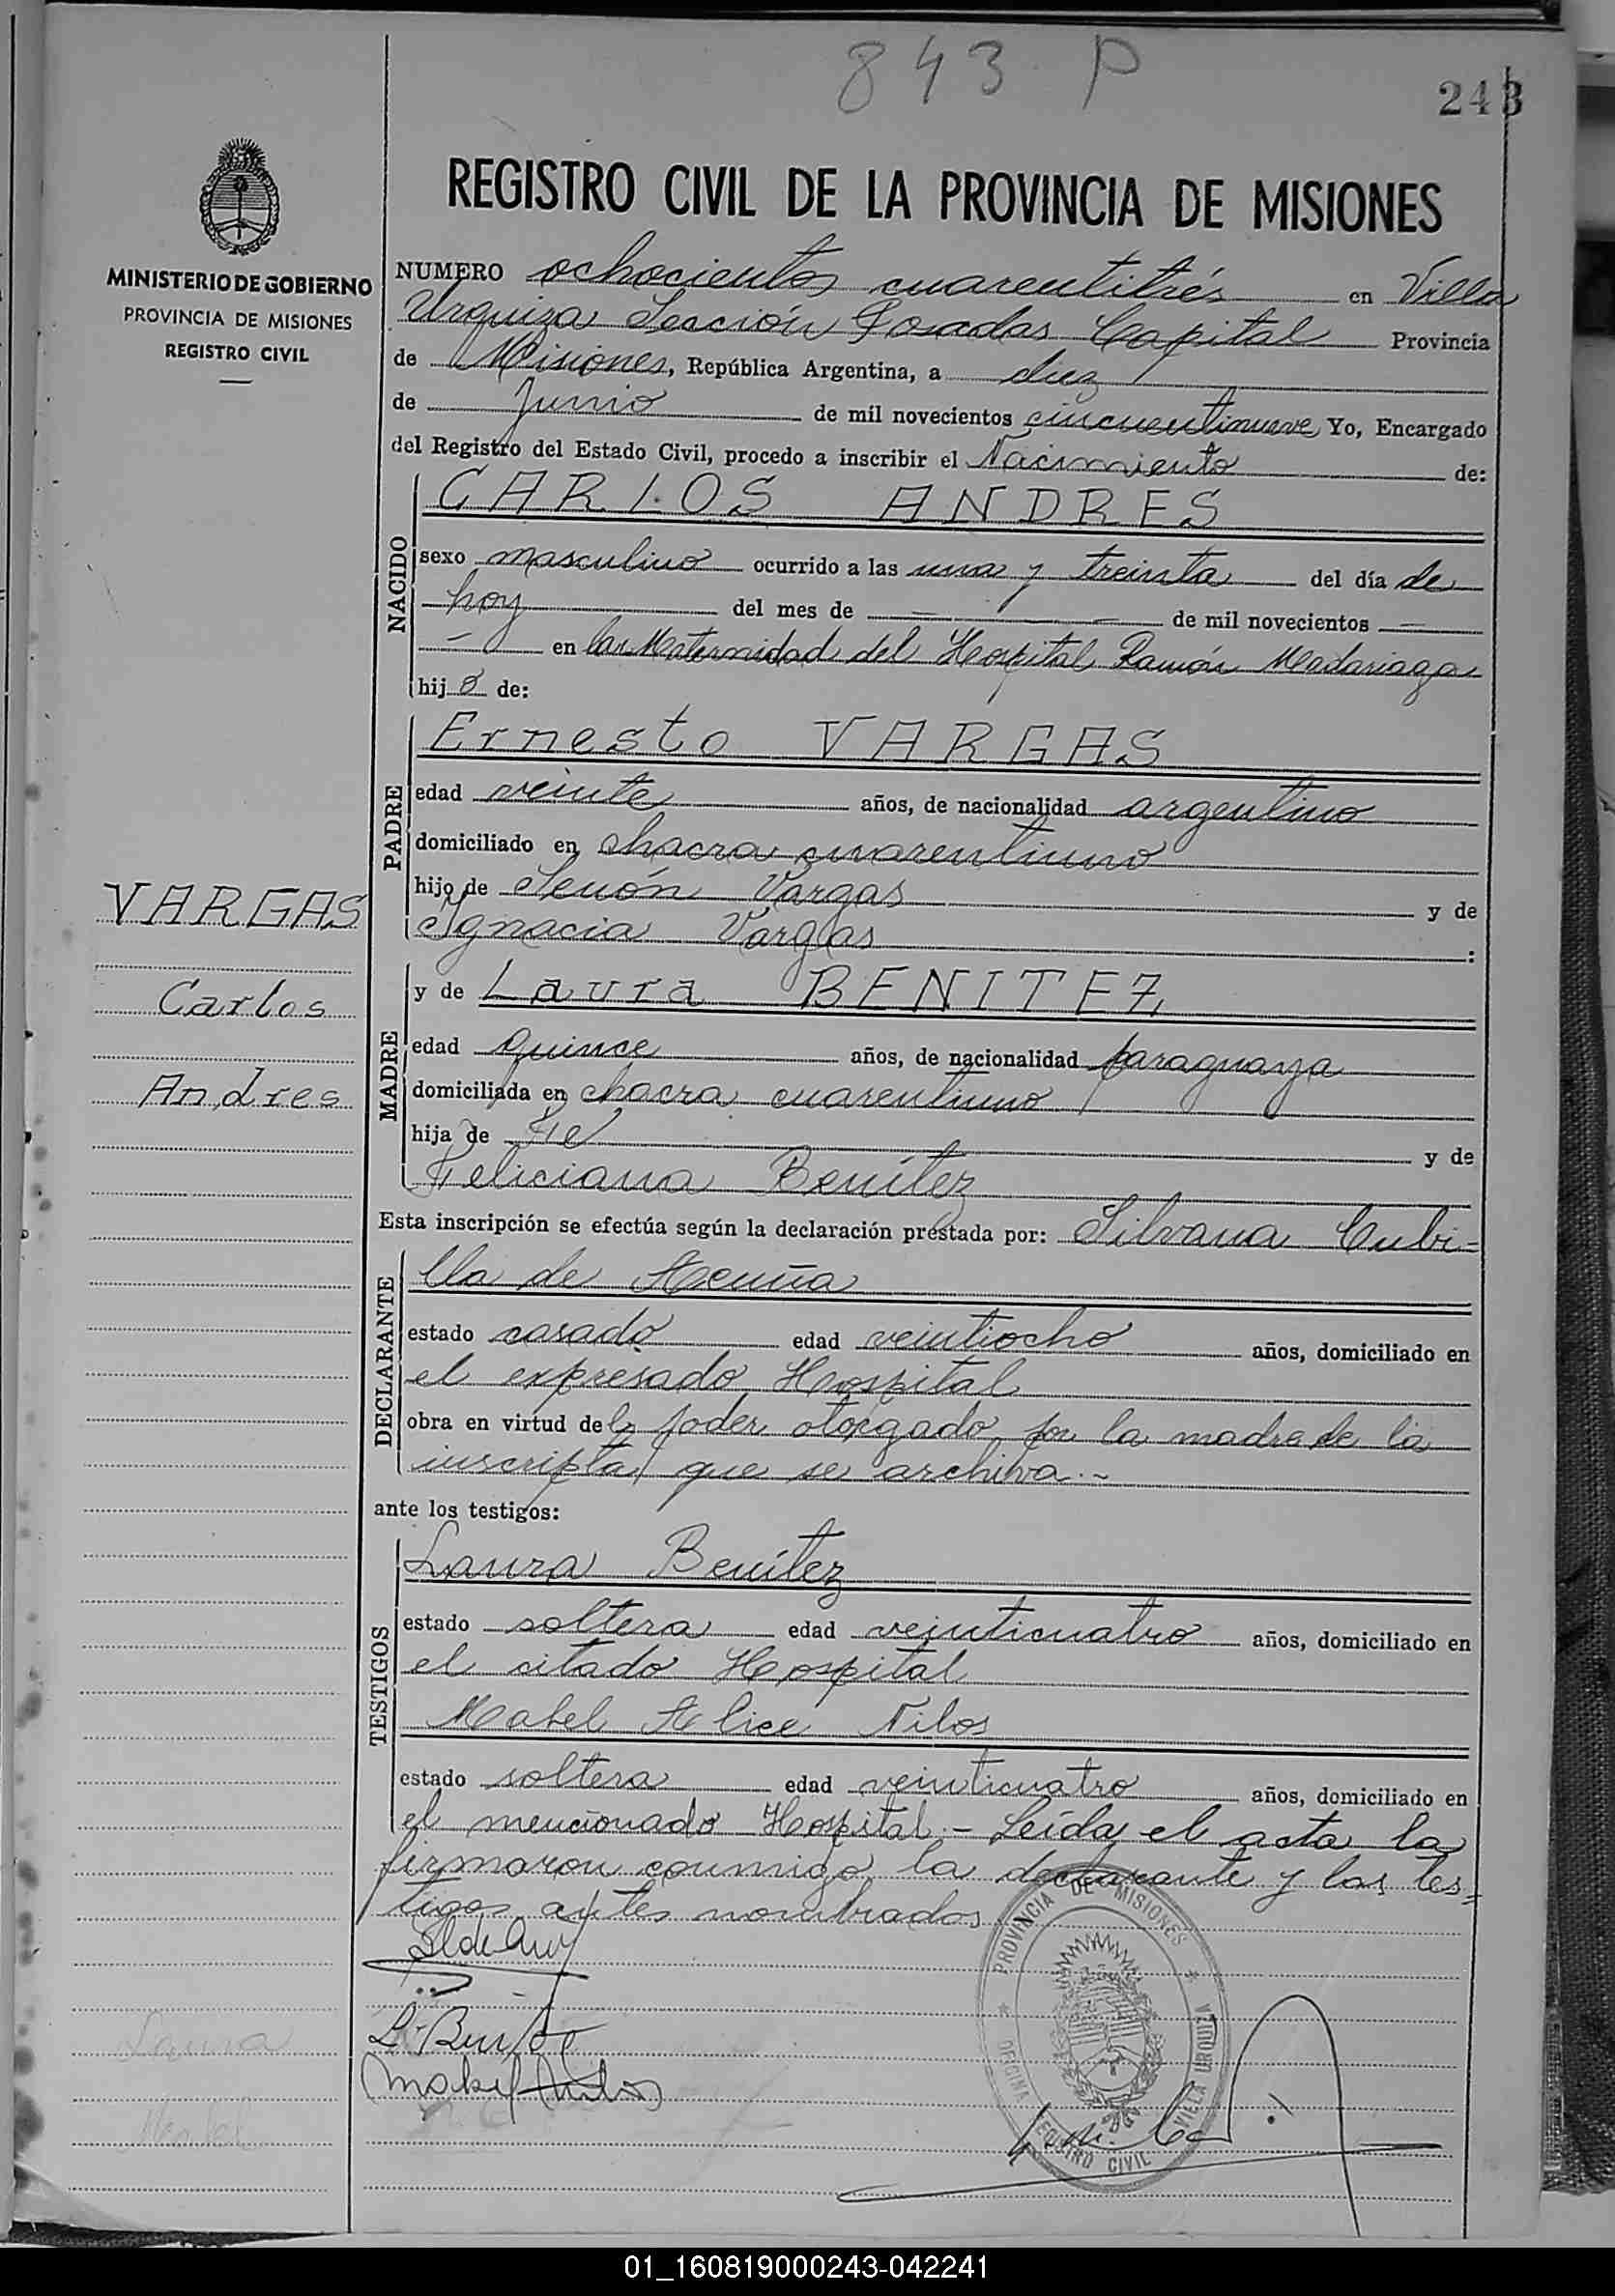 843 P
243
REGISTRO CIVIL DE LA PROVINCIA DE MISIONES
MINISTERIO DE GOBIERNO
PROVINCIA DE MISIONES
REGISTRO CIVIL
NUMERO ochocientos cuarentitrés en Villa
Urquiza Sección Posadas Capital Provincia
de Misiones, República Argentina, a diez
de Junio de mil novecientos cincuentinueve Yo, Encargado
del Registro del Estado Civil, procedo a inscribir el Nacimiento de:
NACIDO
CARLOS ANDRES
sexo masculino ocurrido a las una y treinta del día de
hoy del mes de — de mil novecientos —
— en la Maternidad del Hospital Ramón Madariaga
hijo de:
PADRE
Ernesto VARGAS
edad veinte años, de nacionalidad argentino
domiciliado en chacra cuarentiuno
hijo de Senón Vargas y de
Ignacia Vargas :
VARGAS
Carlos
Andres
MADRE
y de Laura BENITEZ
edad quince años, de nacionalidad paraguaya
domiciliada en chacra cuarentiuno
hija de y de
Feliciana Benítez
Esta inscripción se efectúa según la declaración prestada por: Silvana Cubi=
DECLARANTE
lla de Acuña
estado casado edad veintiocho años, domiciliado en
el expresado Hospital
obra en virtud del poder otorgado por la madre de la
inscripta que se archiva.-
ante los testigos:
TESTIGOS
Laura Benítez
estado soltera edad veinticuatro años, domiciliado en
el citado Hospital
Mabel Alice Nilos
estado soltera edad veinticuatro años, domiciliado en
el mencionado Hospital.- Leída el acta la
firmaron conmigo la declarante y los tes=
tigos antes nombrados
PROVINCIA DE MISIONES
OFICINA REGISTRO CIVIL VILLA URQUIZA
Laura
Mabel
01_160819000243-042241